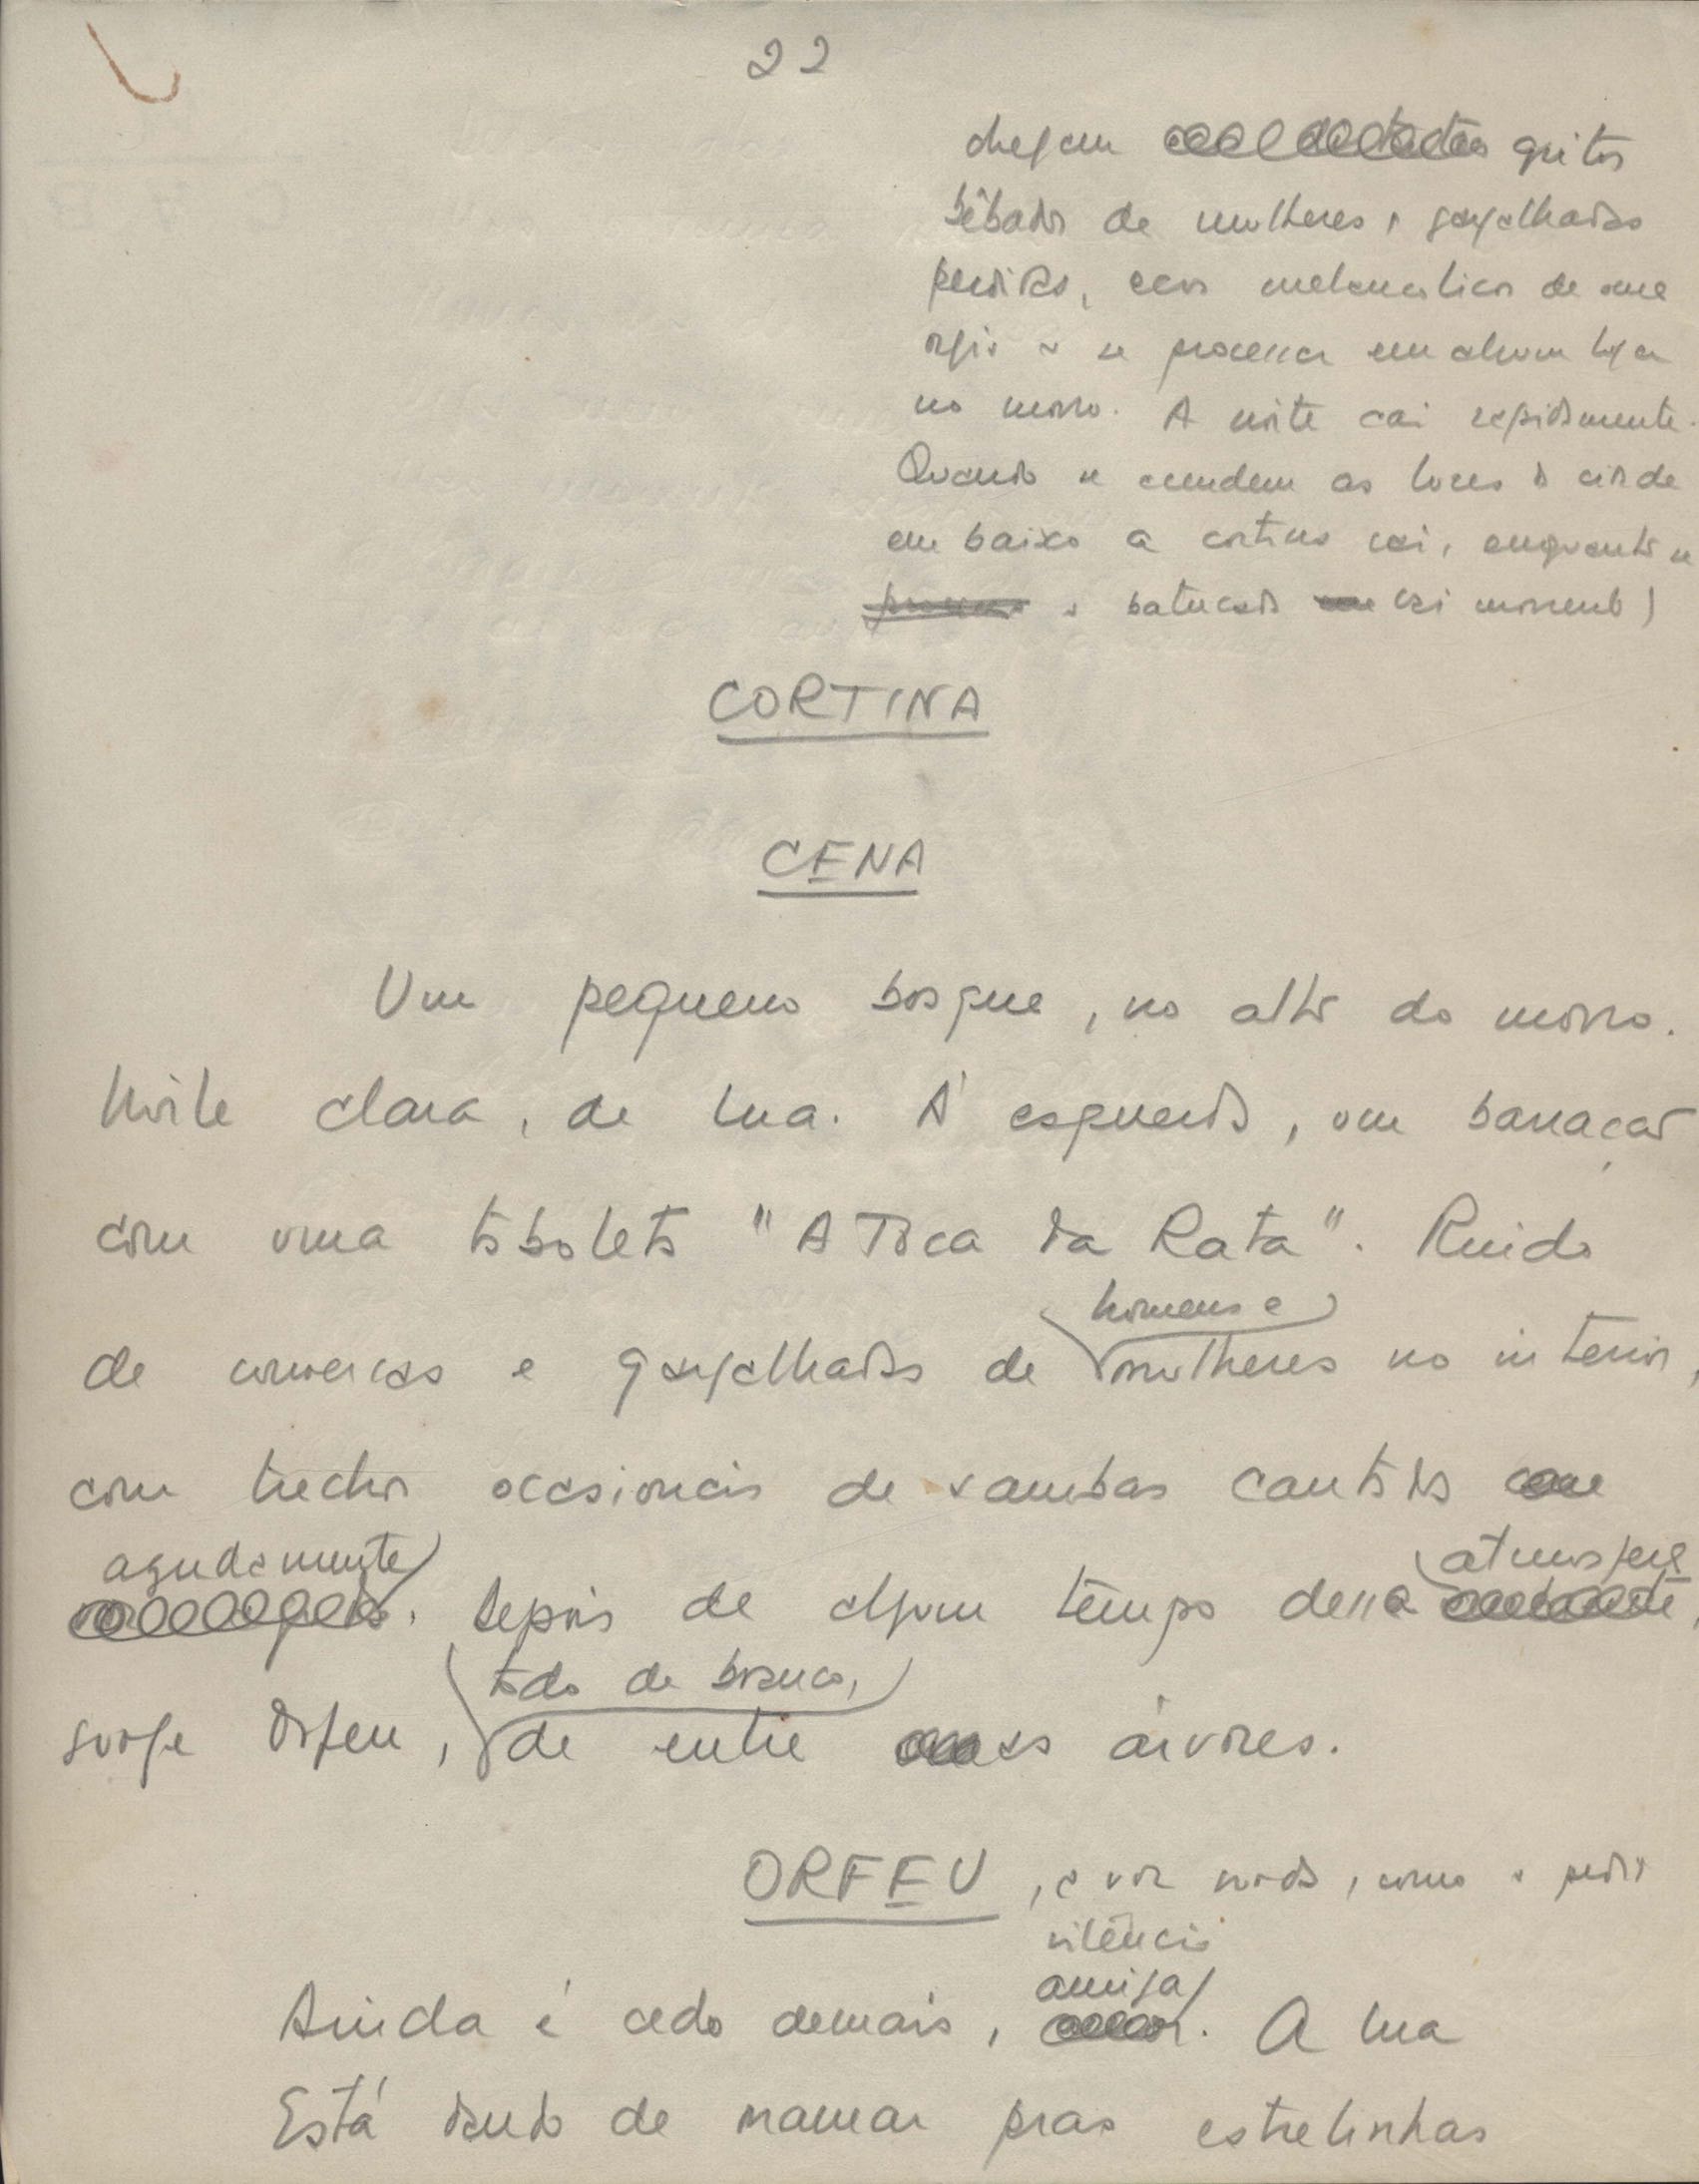 22
chegam gritos
bêbados de mulheres, gargalhadas
perdidas, ecos melancolicos de uma
orgia a se processar em algum lugar
no morro. A noite cai rapidamente.
Quando se acendem as luzes da cidade
em baixo a cortina cai, enquanto se
a batucada vai morrendo)
CORTINA
CENA
Um pequeno bosque, no alto do morro.
Noite clara, de lua. À esquerda, um barracão
com uma taboleta "A Toca da Rata". Ruido
homens e
de conversas e gargalhadas de mulheres no interior,
com trechos ocasionais de sambas cantados
agudamente atmosfera
. Depois de algum tempo dessa ,
todo de branco,
surge Orfeu, de entre as árvores.
ORFEU, a voz surda, como a pedir
silêncio
amiga
Ainda é cedo demais, . A lua
Está dando de mamar pras estrelinhas